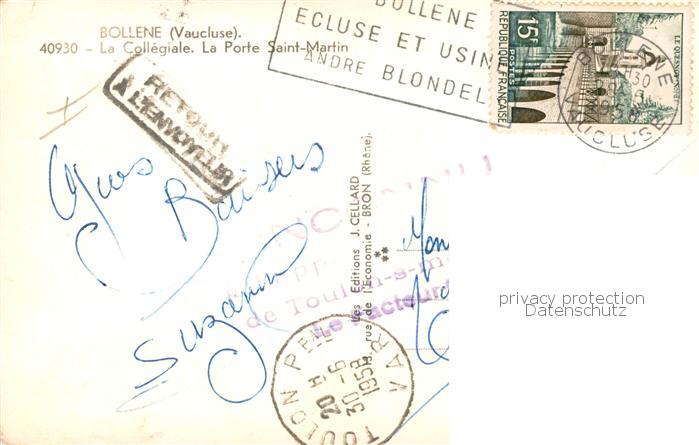 BOLLENE (Vaucluse).
40930 - La Collégiale. La Porte Saint-Martin
BOLLENE
ECLUSE ET USIN
ANDRE BLONDEL
15F
POSTES
REPUBLIQUE FRANÇAISE
LE QUESNOY
BOLLENE
1958
VAUCLUSE
RETOUR
A L'ENVOYEUR
Gros
Baisers
Suzanne
INCONNU
à l'appel
de Toulon-s-m
Le Facteur
Les Editions J. CELLARD
rue de l'Economie - BRON (Rhône).
TOULON
20 H
30 - 6
1958
VAR
privacy protection
Datenschutz